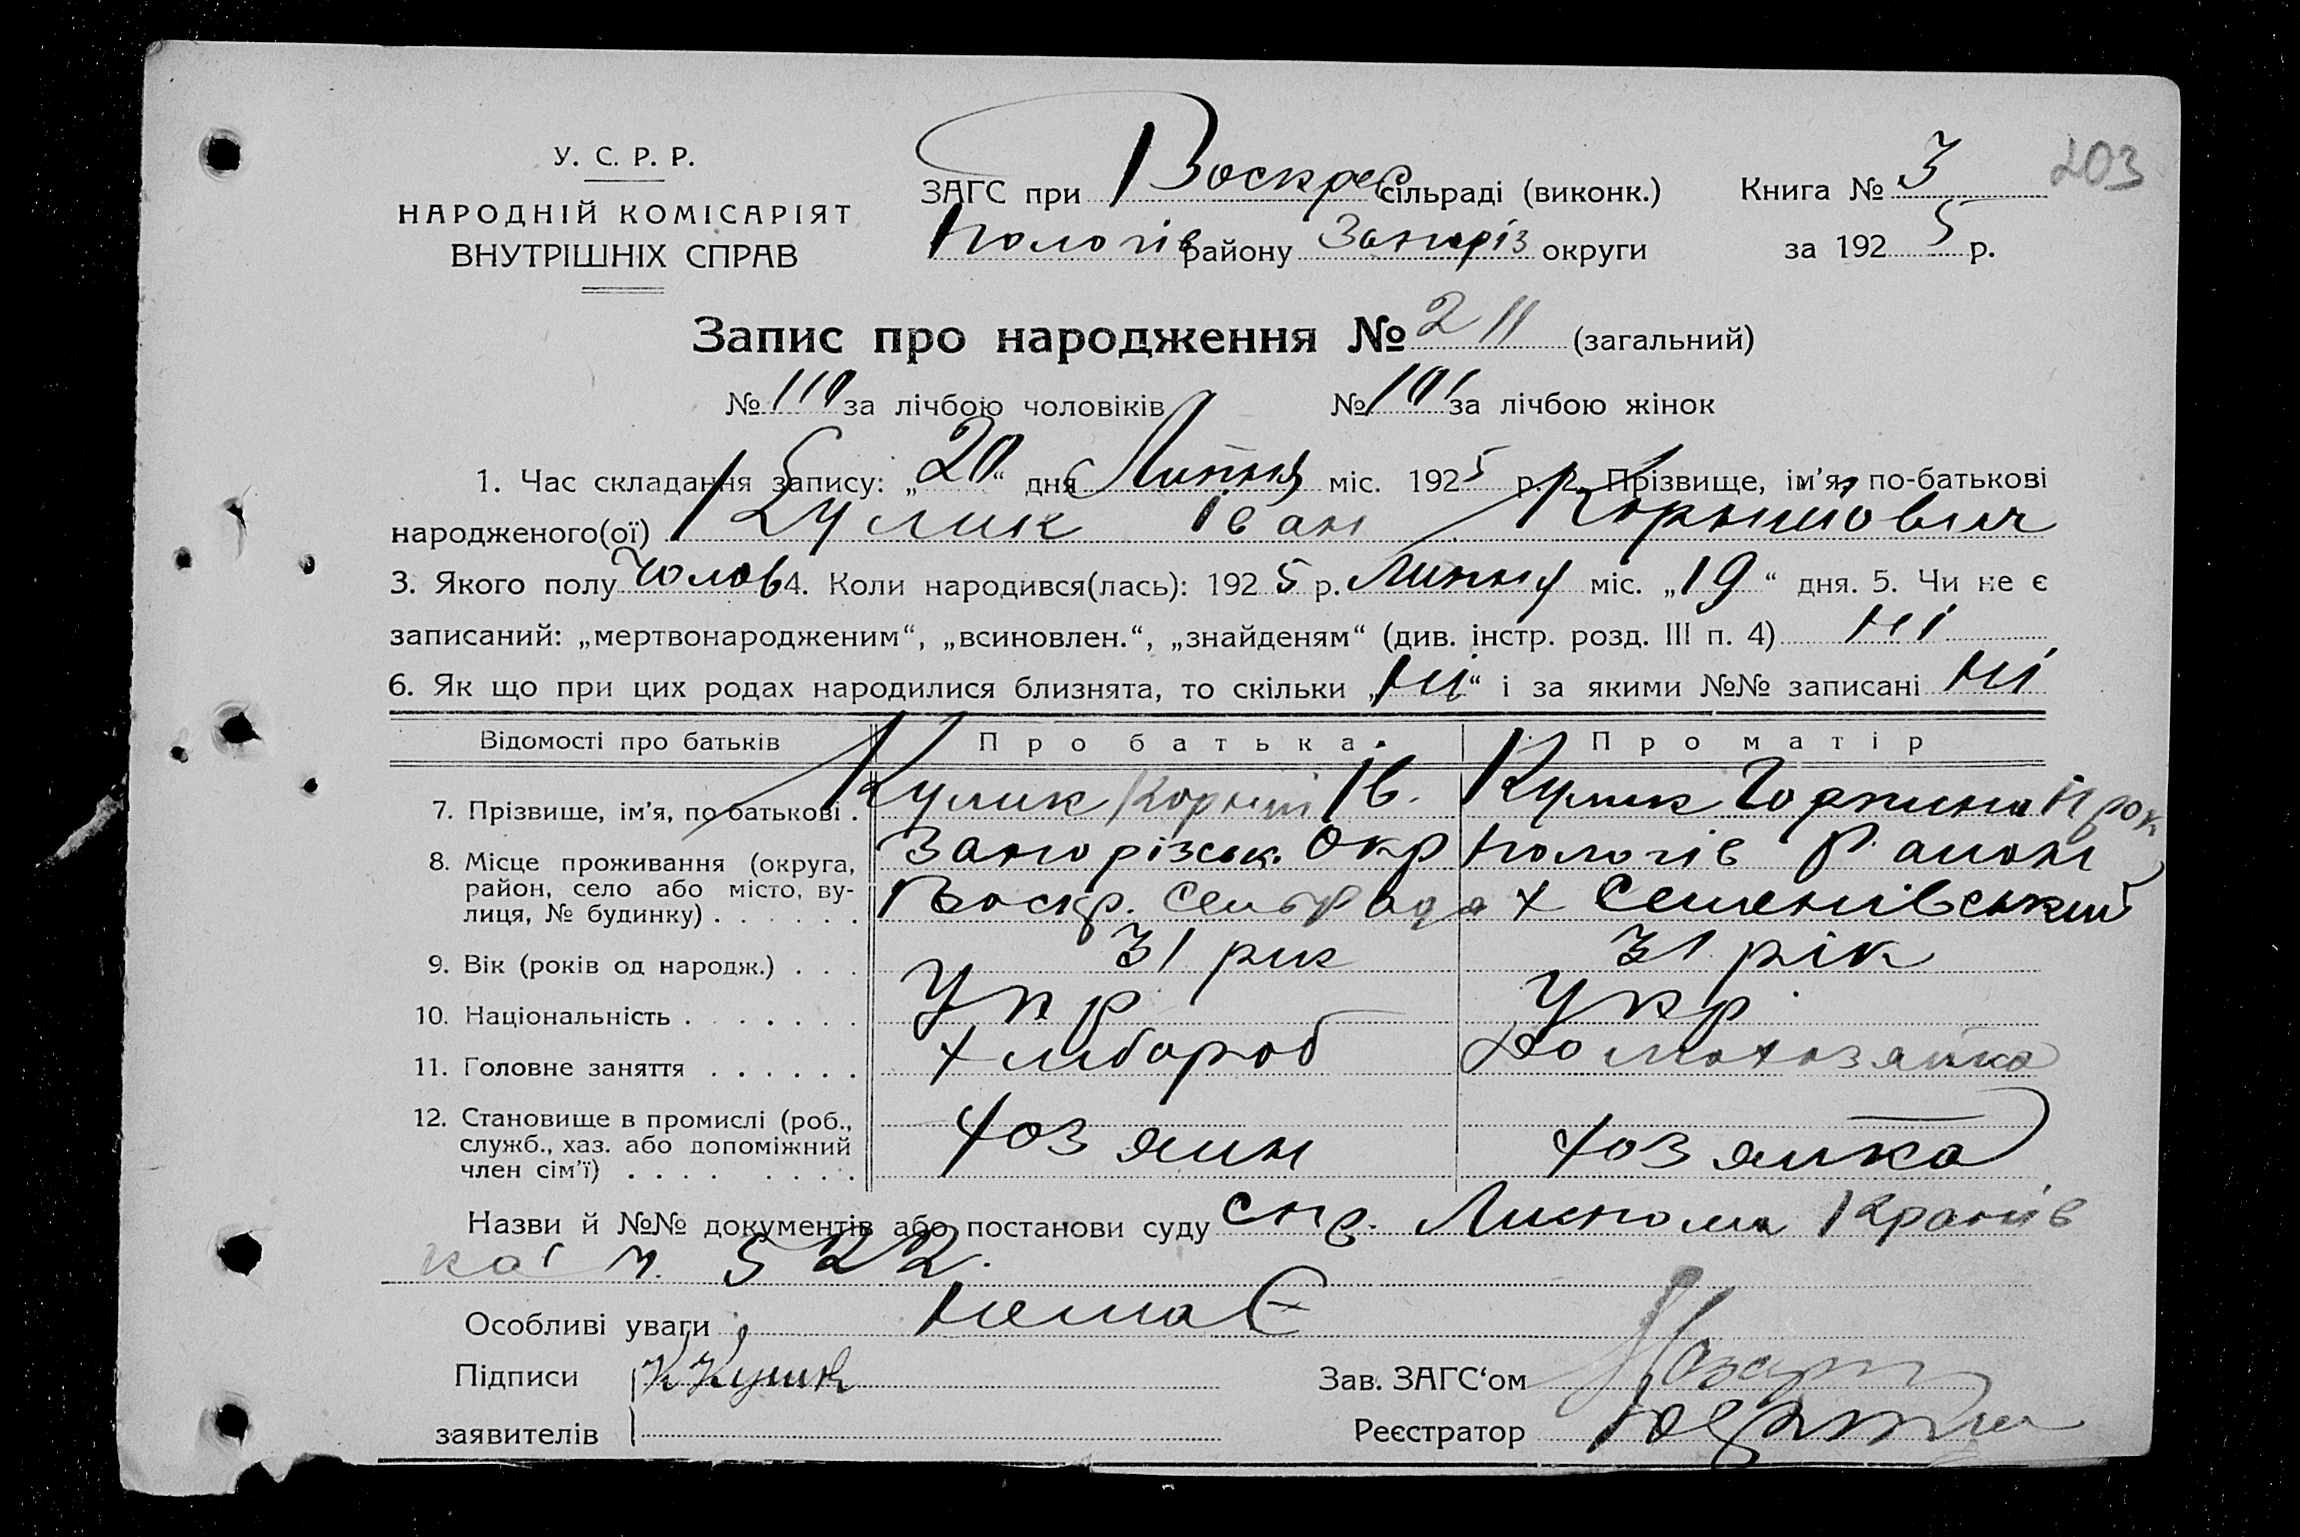 У. С. Р. Р.
НАРОДНІЙ КОМІСАРІЯТ
ВНУТРІШНІХ СПРАВ
ЗАГС при Воскрес сільраді (виконк.) Книга № 3 203
Пологів району Запоріз округи за 1925 р.
Запис про народження № 211 (загальний)
№ 110 за лічбою чоловіків № 101 за лічбою жінок
1. Час складання запису: „20“ дня Липня міс. 1925 р. 2. Прізвище, ім’я, по-батькові
народженого(ої) Кулик Іван Корнійович
3. Якого полу чолов 4. Коли народився(лась): 1925 р. Липня міс. „19“ дня. 5. Чи не є
записаний: „мертвонародженим“, „всиновлен.“, „знайденям“ (див. інстр. розд. III п. 4) ні
6. Як що при цих родах народилися близнята, то скільки „ні“ і за якими №№ записані ні
Відомості про батьків Про батька Про матір
7. Прізвище, ім’я, по батькові . Кулик Корній Ів. Кулик
8. Місце проживання (округа, район, село або місто, вулиця, № будинку) . . . . . . Запорізськ. Окр Пологів Район
Воскр. сельрада х Семенівський
9. Вік (років од народж.) . . . 31 рик 31 рік
10. Національність . . . . . . . Укр Укр
11. Головне заняття . . . . . . Хлібороб Домохозяйка
12. Становище в промислі (роб., служб., хаз. або допоміжний член сім’ї) . . . . . . . . Хозяин хозяйка
Назви й №№ документів або постанови суду спр.
ч. 522.
Особливі уваги немає
Підписи К Кулик Зав. ЗАГС‘ом
заявителів Реєстратор